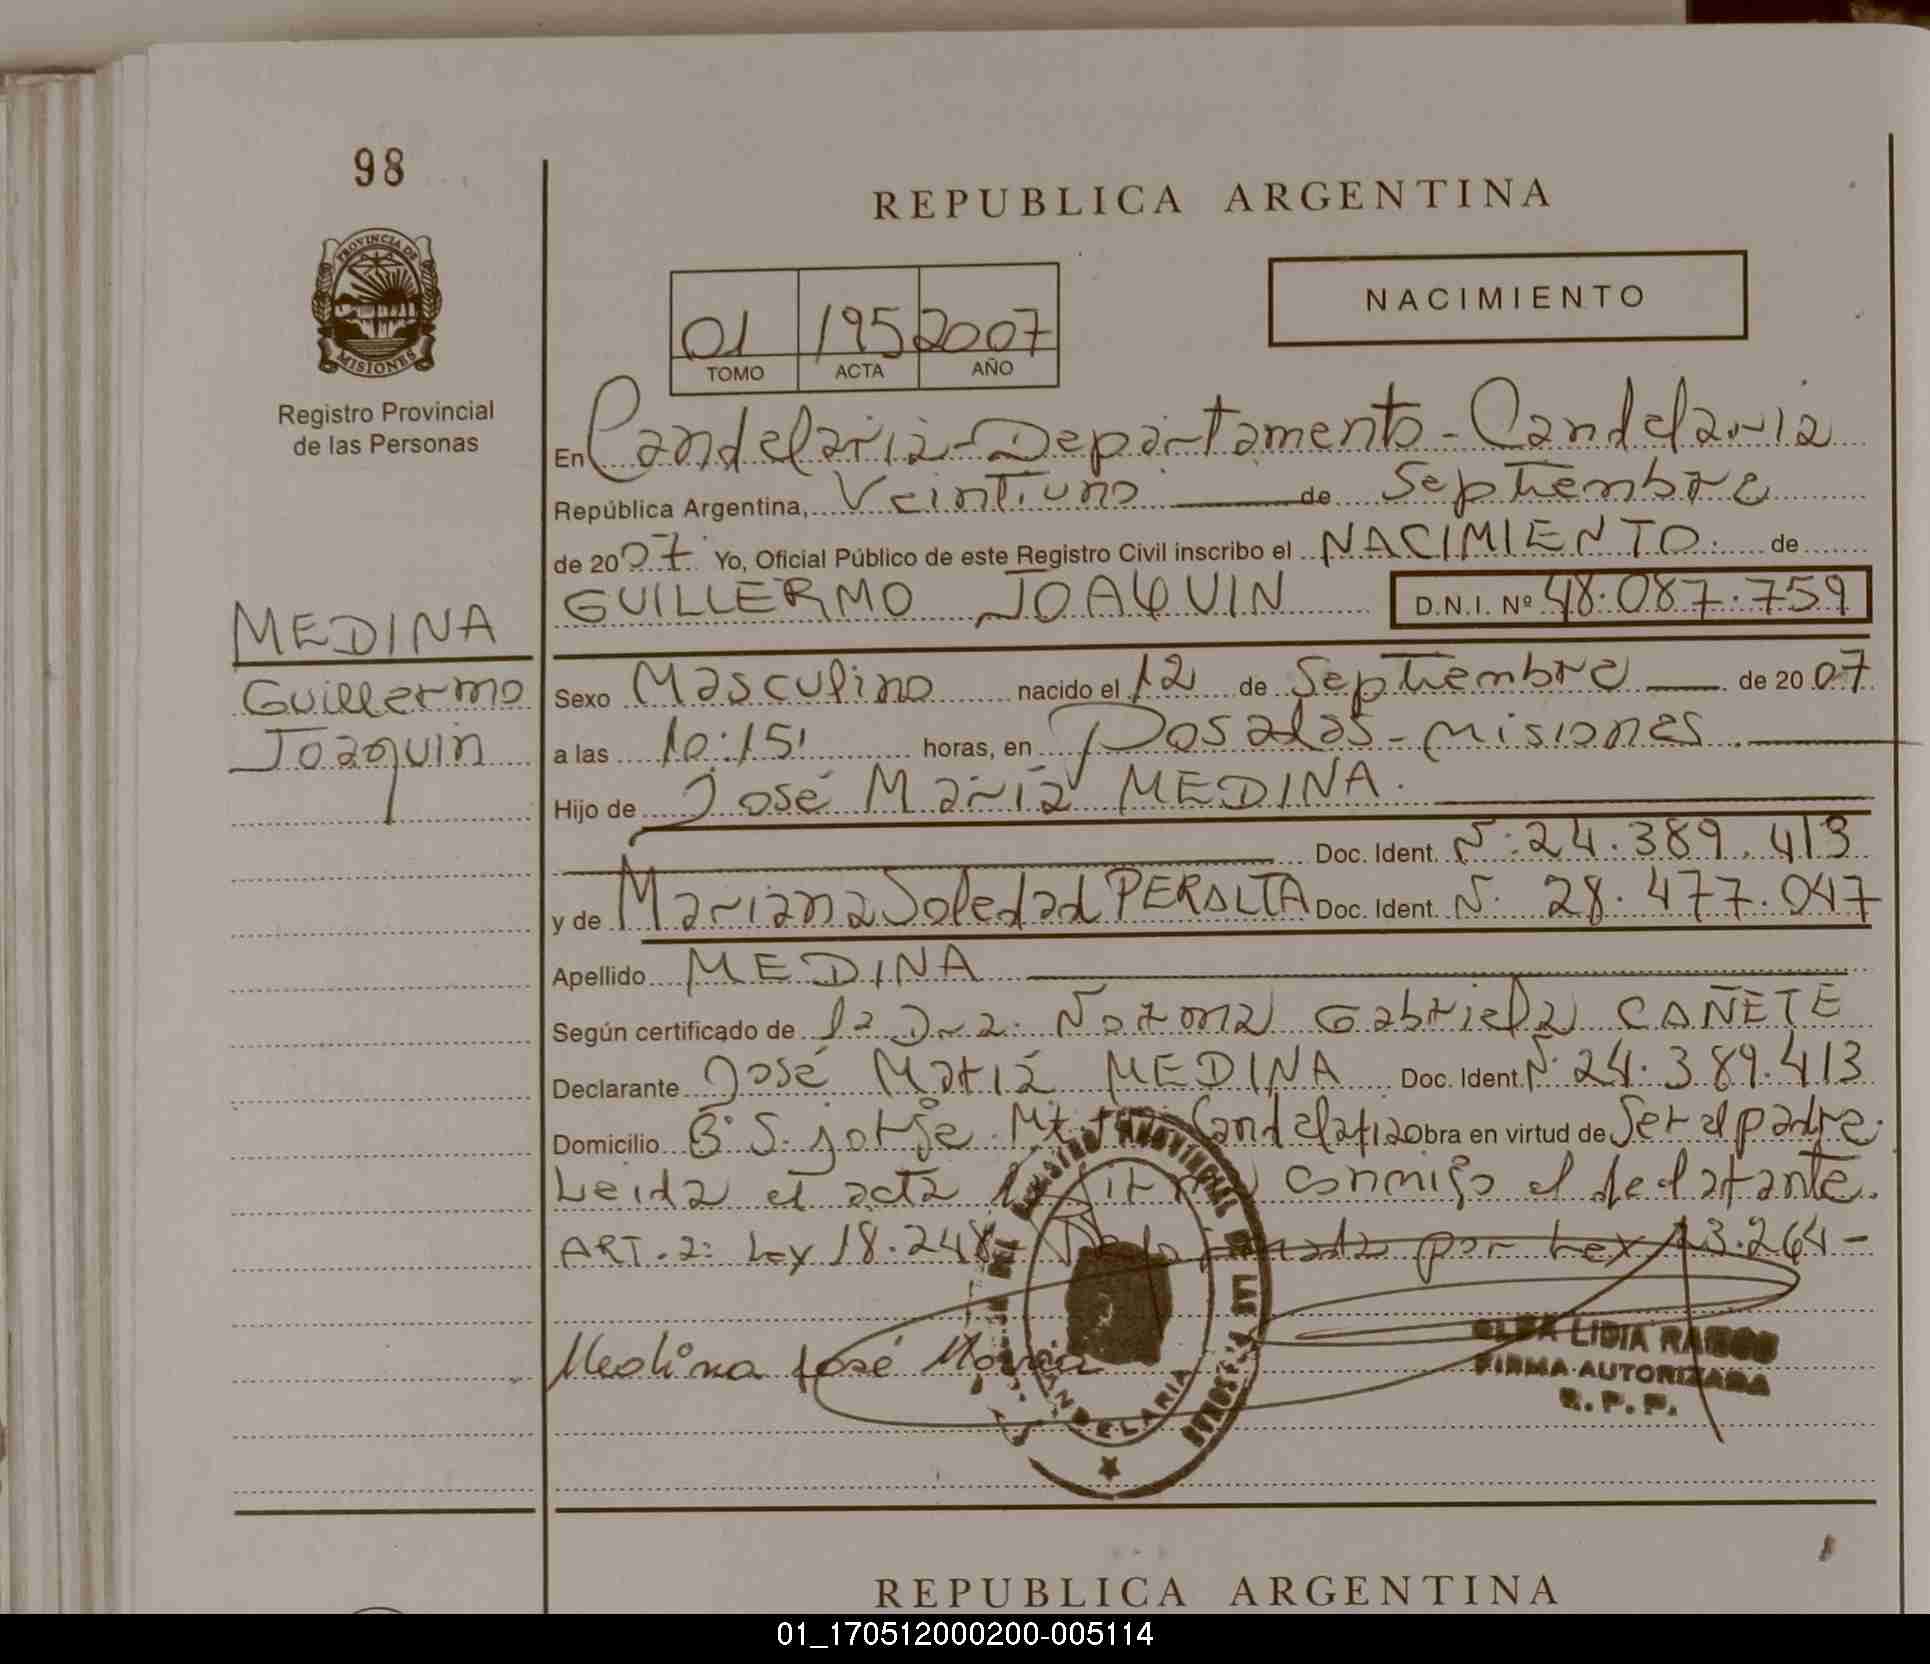 98
REPUBLICA ARGENTINA
PROVINCIA DE
MISIONES
Registro Provincial
de las Personas
NACIMIENTO
01 195 2007
TOMO ACTA AÑO
En Candelaria - Departamento - Candelaria
República Argentina, Veintiuno de Septiembre
de 2007. Yo, Oficial Público de este Registro Civil inscribo el NACIMIENTO. de
GUILLERMO JOAQUIN D.N.I. Nº 48.087.759
MEDINA
Guillermo
Joaquin
Sexo Masculino nacido el 12 de Septiembre de 2007
a las 10:15' horas, en Posadas - Misiones
Hijo de José María MEDINA.
Doc. Ident. N: 24.389.413
y de Mariana Soledad PERALTA Doc. Ident. N. 28.477.047
Apellido MEDINA
Según certificado de la Dra. Norma Gabriela CAÑETE
Declarante José María MEDINA Doc. Ident. N. 24.389.413
Domicilio Bº S. Jorge Candelaria Obra en virtud de Ser el padre.
Leida el acta conmigo el declarante.
ART. 2: Ley 18.248 por Ley 13.264 -
Medina José María
CANDELARIA
LIDIA RAMOS
FIRMA AUTORIZADA
R. P. P.
REPUBLICA ARGENTINA
01_170512000200-005114